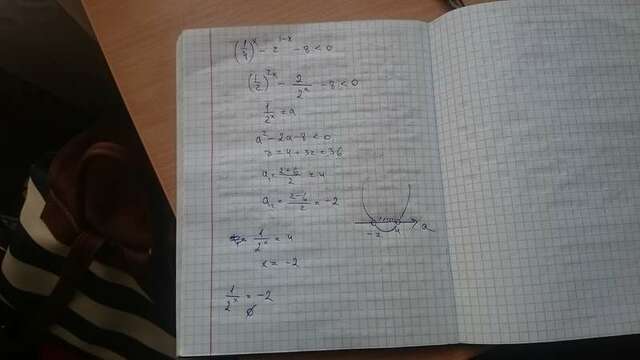 (1/4)^x - 2^(1-x) - 8 < 0
(1/2)^(2x) - 2/2^x - 8 < 0
1/2^x = a
a² - 2a - 8 < 0
D = 4 + 32 = 36
a₁ = (2+6)/2 = 4
a₁ = (2-6)/2 = -2
1/2^x = 4
x = -2
1/2^x = -2
∅
-2 4 a